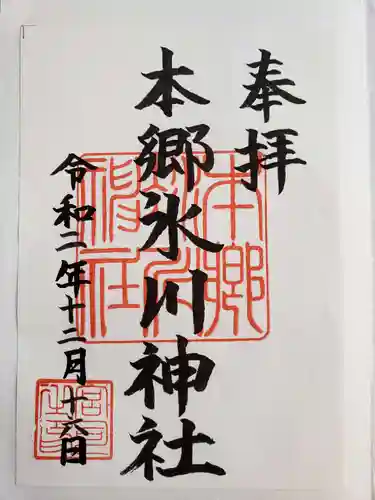 奉拝
本郷氷川神社
令和二年十二月十六日
本郷氷川神社